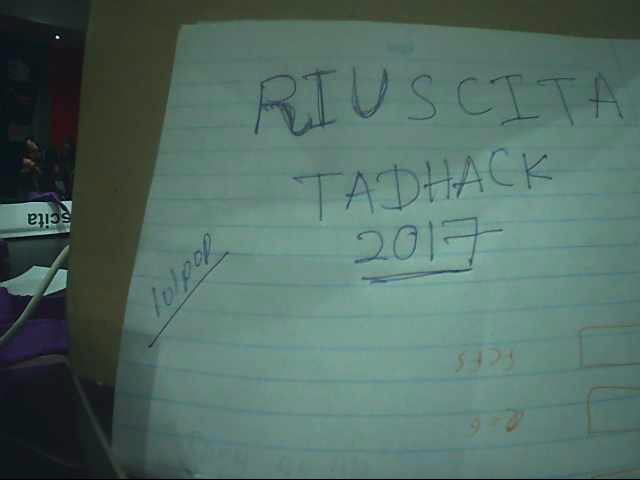 RIUSCITA
TADHACK
2017
lolpop
scita
FCFS